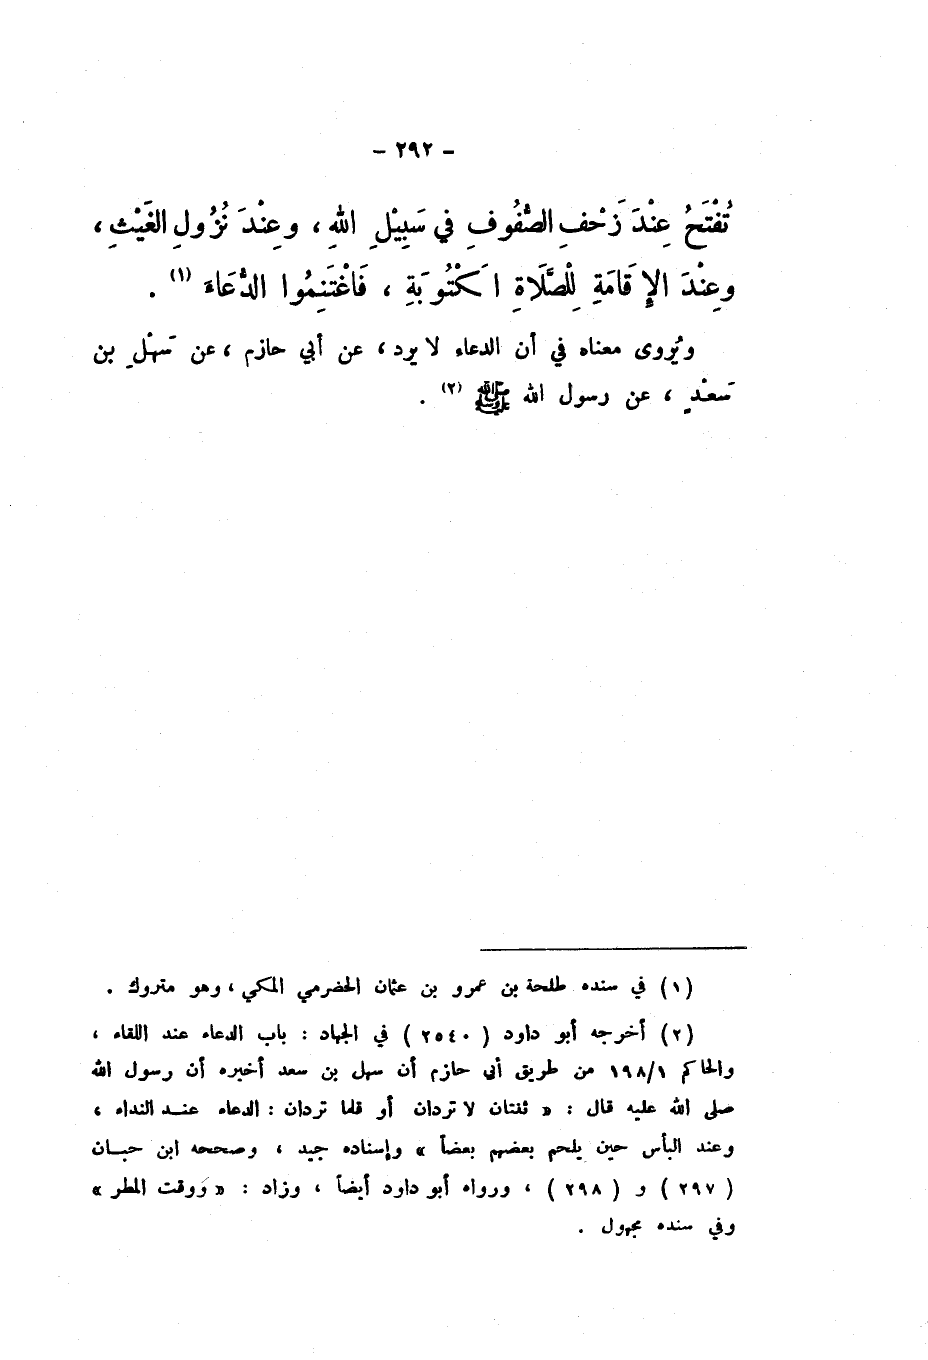 - ٢٩٢ -
تُفْتَحُ عِنْدَ زَحْفِ الصُّفُوفِ في سَبِيْلِ اللهِ ، وعِنْدَ نُزُولِ الغَيْثِ ،
وعِنْدَ الإِقَامَةِ لِلْصَّلَاةِ اَكْتُوبَةِ ، فَاغْتَنِمُوا الدُّعَاءَ (١) .
ويُروى معناه في أن الدعاء لا يرد ، عن أبي حازم ، عن سَهْلِ بن
سَعْدٍ ، عن رسول الله ﷺ (٢) .
(١) في سنده طلحة بن عمرو بن عثمان الحضرمي المكي ، وهو متروك .
(٢) أخرجه أبو داود ( ٢٥٤٠ ) في الجهاد : باب الدعاء عند اللقاء ،
والحاكم ١٩٨/١ من طريق أبي حازم أن سهل بن سعد أخبره أن رسول الله
صلى الله عليه قال : « ثنتان لا تردان أو قلما تردان : الدعاء عند النداء ،
وعند البأس حين يلحم بعضهم بعضاً » وإسناده جيد ، وصححه ابن حبان
( ٢٩٧ ) و ( ٢٩٨ ) ، ورواه أبو داود أيضاً ، وزاد : « وَوقت المطر »
وفي سنده مجهول .